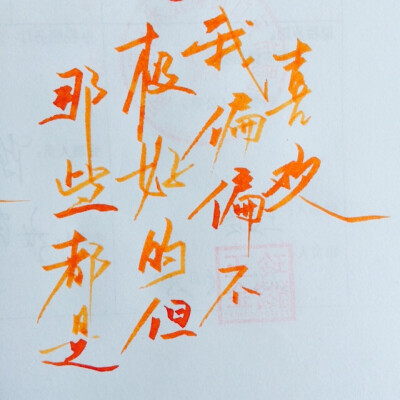 那些都是
极好的但
我偏偏不
喜欢